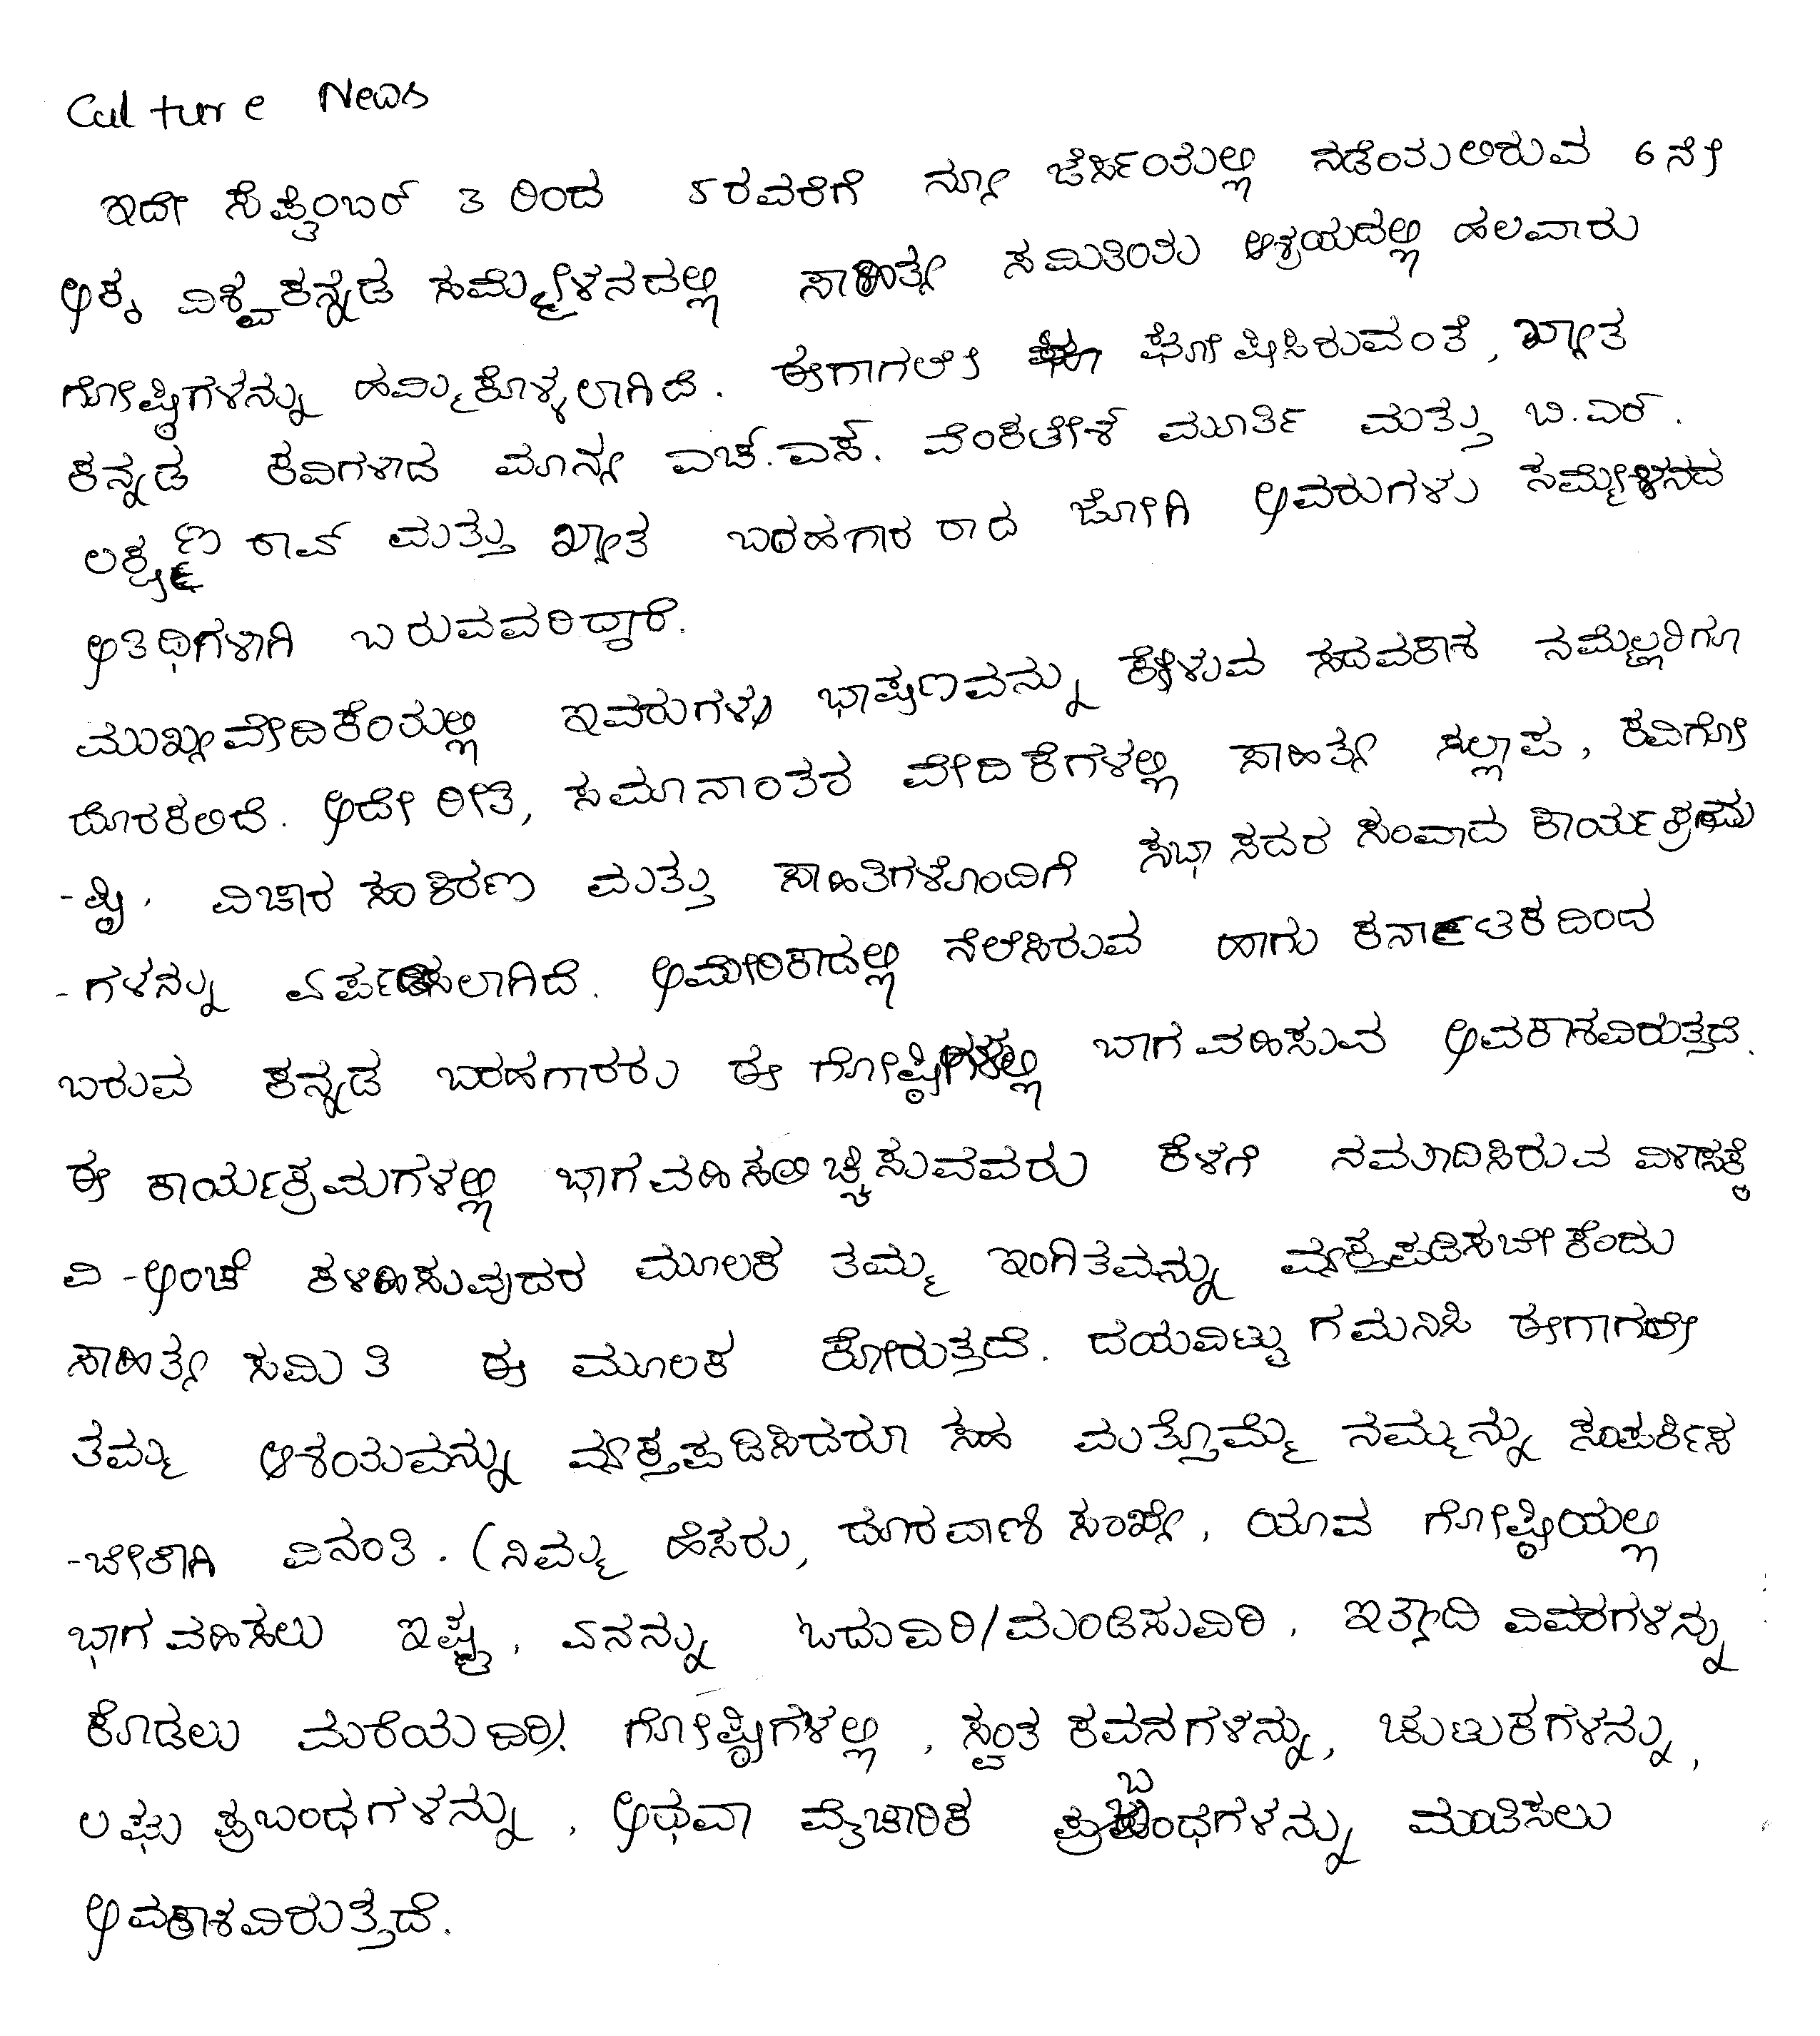 Culture News
ಇದೇ ಸೆಪ್ಟೆಂಬರ್ 3 ರಿಂದ 5ರವರೆಗೆ ನ್ಯೂ ಜೆರ್ಸಿಯಲ್ಲಿ ನಡೆಯಲಿರುವ 6ನೇ
ಅಕ್ಕ ವಿಶ್ವಕನ್ನಡ ಸಮ್ಮೇಳನದಲ್ಲಿ ಸಾಹಿತ್ಯ ಸಮಿತಿಯ ಆಶ್ರಯದಲ್ಲಿ ಹಲವಾರು
ಗೋಷ್ಠಿಗಳನ್ನು ಹಮ್ಮಿಕೊಳ್ಳಲಾಗಿದೆ. ಈಗಾಗಲೇ ಘೋಷಿಸಿರುವಂತೆ, ಖ್ಯಾತ
ಕನ್ನಡ ಕವಿಗಳಾದ ಮಾನ್ಯ ಎಚ್.ಎಸ್. ವೆಂಕಟೇಶ್ ಮೂರ್ತಿ ಮತ್ತು ಬಿ.ಎರ್.
ಲಕ್ಷ್ಮಣ ರಾವ್ ಮತ್ತು ಖ್ಯಾತ ಬರಹಗಾರರಾದ ಜೋಗಿ ಅವರುಗಳು ಸಮ್ಮೇಳನದ
ಅತಿಥಿಗಳಾಗಿ ಬರುವವರಿದ್ದಾರೆ.
ಮುಖ್ಯವೇದಿಕೆಯಲ್ಲಿ ಇವರುಗಳ ಭಾಷಣವನ್ನು ಕೇಳುವ ಸದವಕಾಶ ನಮ್ಮೆಲ್ಲರಿಗೂ
ದೊರಕಲಿದೆ. ಅದೇ ರೀತಿ, ಸಮಾನಾಂತರ ವೇದಿಕೆಗಳಲ್ಲಿ ಸಾಹಿತ್ಯ ಸಲ್ಲಾಪ, ಕವಿಗೋ
-ಷ್ಠಿ, ವಿಚಾರ ಸಂಕಿರಣ ಮತ್ತು ಸಾಹಿತಿಗಳೊಂದಿಗೆ ಸಭಾಸದರ ಸಂವಾದ ಕಾರ್ಯಕ್ರಮ
-ಗಳನ್ನು ಏರ್ಪಡಿಸಲಾಗಿದೆ. ಅಮೇರಿಕಾದಲ್ಲಿ ನೆಲೆಸಿರುವ ಹಾಗು ಕರ್ನಾಟಕದಿಂದ
ಬರುವ ಕನ್ನಡ ಬರಹಗಾರರು ಈ ಗೋಷ್ಠಿಗಳಲ್ಲಿ ಬಾಗವಹಿಸುವ ಅವಕಾಶವಿರುತ್ತದೆ.
ಈ ಕಾರ್ಯಕ್ರಮಗಳಲ್ಲಿ ಭಾಗವಹಿಸಲಿಚ್ಚಿಸುವವರು ಕೆಳಗೆ ನಮೂದಿಸಿರುವ ವಿಳಾಸಕ್ಕೆ
ವಿ-ಅಂಚೆ ಕಳಹಿಸುವುದರ ಮೂಲಕ ತಮ್ಮ ಇಂಗಿತವನ್ನು ವ್ಯಕ್ತಪಡಿಸಬೇಕೆಂದು
ಸಾಹಿತ್ಯ ಸಮಿತಿ ಈ ಮೂಲಕ ಕೋರುತ್ತದೆ. ದಯವಿಟ್ಟು ಗಮನಿಸಿ ಈಗಾಗಲೇ
ತಮ್ಮ ಆಶಯವನ್ನು ವ್ಯಕ್ತಪಡಿಸಿದರೂ ಸಹ ಮತ್ತೊಮ್ಮೆ ನಮ್ಮನ್ನು ಸಂಪರ್ಕಿಸ
-ಬೇಕಾಗಿ ವಿನಂತಿ. (ನಿಮ್ಮ ಹೆಸರು, ದೂರವಾಣಿ ಸಂಖ್ಯೆ, ಯಾವ ಗೋಷ್ಠಿಯಲ್ಲಿ
ಭಾಗವಹಿಸಲು ಇಷ್ಟ, ಏನನ್ನು ಓದುವಿರಿ/ಮಂಡಿಸುವಿರಿ, ಇತ್ಯಾದಿ ವಿವರಗಳನ್ನು
ಕೊಡಲು ಮರೆಯದಿರಿ). ಗೋಷ್ಠಿಗಳಲ್ಲಿ, ಸ್ವಂತ ಕವನಗಳನ್ನು, ಚುಟುಕಗಳನ್ನು,
ಲಘು ಪ್ರಬಂಧಗಳನ್ನು, ಅಥವಾ ವೈಚಾರಿಕ ಪ್ರಬಂಧಗಳನ್ನು ಮಂಡಿಸಲು
ಅವಕಾಶವಿರುತ್ತದೆ.